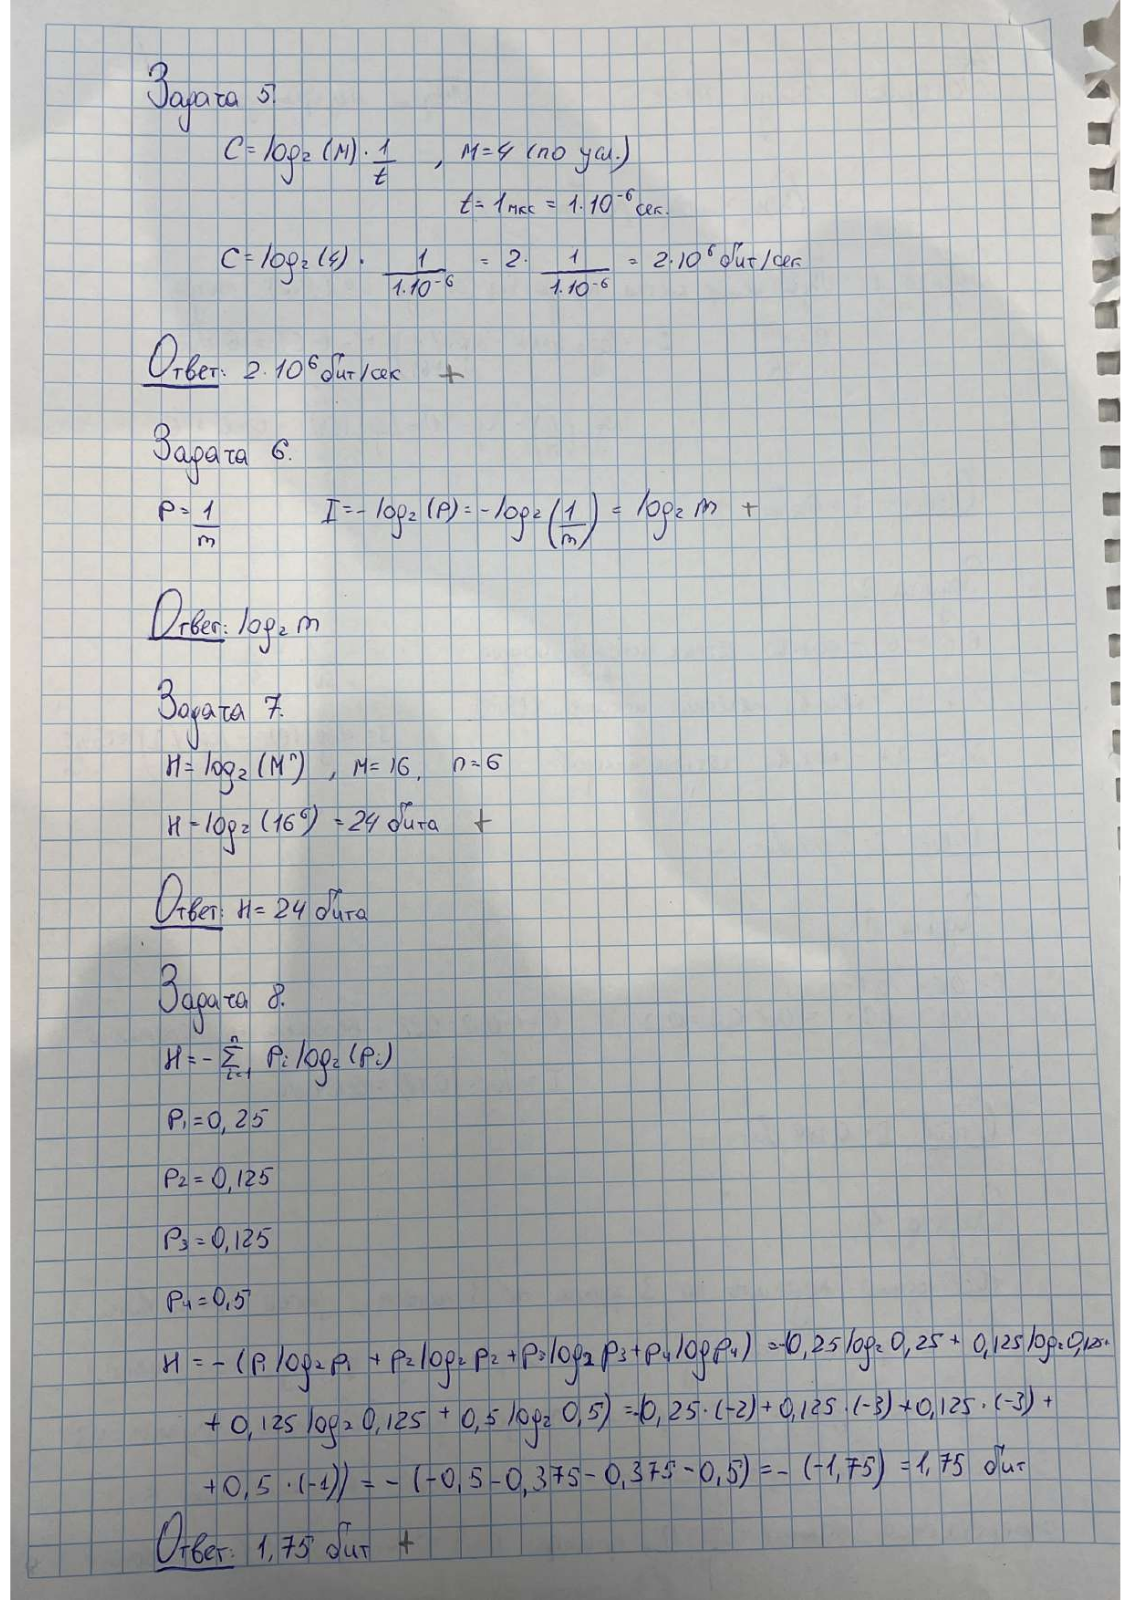 Задача 5.
C = log₂ (M) · 1/t , M=4 (по усл.)
t = 1 мкс = 1·10⁻⁶ сек.
C = log₂ (4) · 1/(1·10⁻⁶) = 2 · 1/(1·10⁻⁶) = 2·10⁶ бит/сек
Ответ: 2·10⁶ бит/сек +
Задача 6.
P = 1/m I = - log₂ (P) = - log₂ (1/m) = log₂ m +
Ответ: log₂ m
Задача 7.
H = log₂ (Mⁿ) , M = 16, n = 6
H = log₂ (16⁶) = 24 бита +
Ответ: H = 24 бита
Задача 8.
H = - Σⁿᵢ₌₁ Pᵢ log₂ (Pᵢ)
P₁ = 0,25
P₂ = 0,125
P₃ = 0,125
P₄ = 0,5
H = - (P₁ log₂ P₁ + P₂ log₂ P₂ + P₃ log₂ P₃ + P₄ log P₄) = -(0,25 log₂ 0,25 + 0,125 log₂ 0,125 +
+ 0,125 log₂ 0,125 + 0,5 log₂ 0,5) = -(0,25 · (-2) + 0,125 · (-3) + 0,125 · (-3) +
+ 0,5 · (-1)) = - (-0,5 - 0,375 - 0,375 - 0,5) = - (-1,75) = 1,75 бит
Ответ: 1,75 бит +